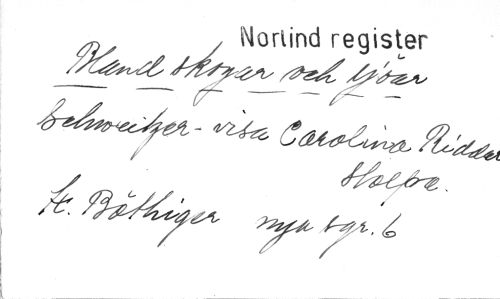 Norlind register
Bland skogar och sjöar
Schweitzer-visa Carolina Ridder
Stolpe.
H. Böttiger nya sgr. 6